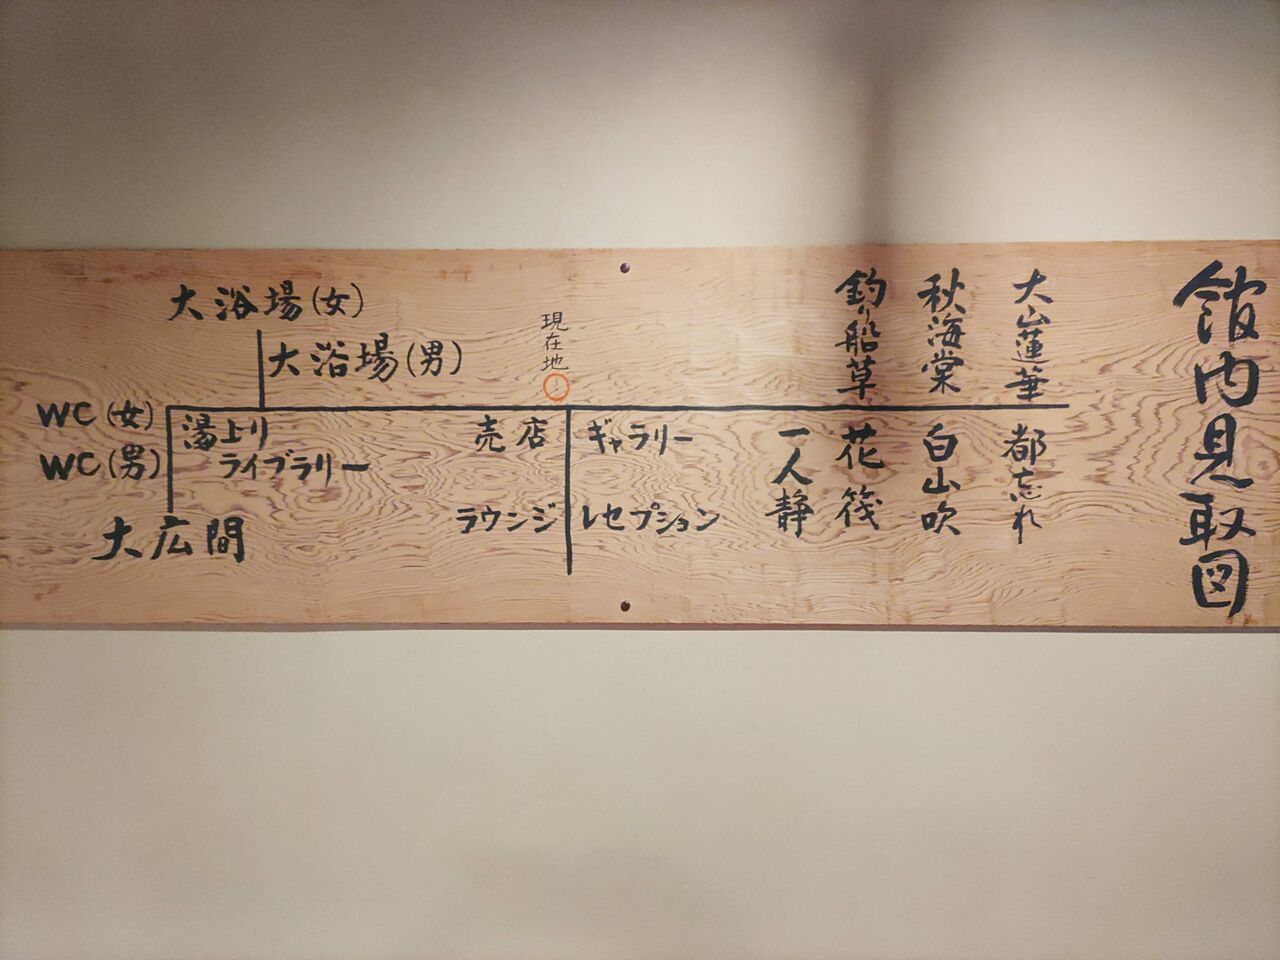 館内見取図
大山蓮華
秋海棠
釣船草
都忘れ
白山吹
花筏
一人静
現在地
ギャラリー
レセプション
売店
ラウンジ
大浴場(女)
大浴場(男)
湯上り
ライブラリー
WC(女)
WC(男)
大広間